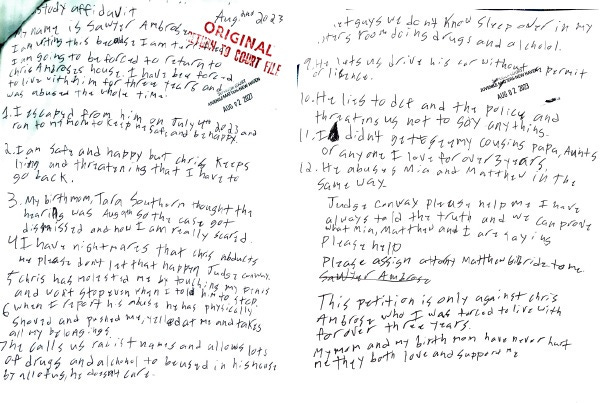 study affidavit
Aug 2023
My name is Sawyer Ambrose
I am writing this because I am terrified
I am going to be forced to return to
Chris Ambroses house. I have been forced
to live with him for three years and
was abused the whole time.
ORIGINAL
RETURN TO COURT FILE
1. I escaped from him on July 2023 and
ran to my mom to keep me safe and be happy.
2. I am safe and happy but Chris keeps
lying and threatening that I have to
go back.
3. My birth mom, Tara Southern thought the
hearing was Aug so the case got
dismissed and now I am really scared.
4 I have nightmares that Chris abducts
me please dont let that happen Judge Conway.
5 Chris has molested me by touching my penis
and wont stop even when I told him to stop.
6 when I report his abuse he has physically
shoved and pushed me, yelled at me and takes
all my belongings
7 He calls us racist names and allows lots
of drugs and alchohol to be used in his house
by all of us, he doesnt care.
guys we dont know sleep over in my
room doing drugs and alchohol.
9. He lets us drive his car without permit
or licence.
AUG 02 2023
10. He lies to dcf and the police and
threating us not to say anything.
AUG 02 2023
11. I didnt get to see my cousins papa, Aunts
or anyone I love for over 3 years.
12. He abuses Mia and Matthew in the
same way.
Judge Conway please help me I have
always told the truth and we can prove
what Mia, Matthew and I are saying
Please help
Please assign Matthew to me.
Sawyer Ambrose
This petition is only against Chris
Ambrose who I was forced to live with
for over three years.
My mom and my birth mom have never hurt
me they both love and support me